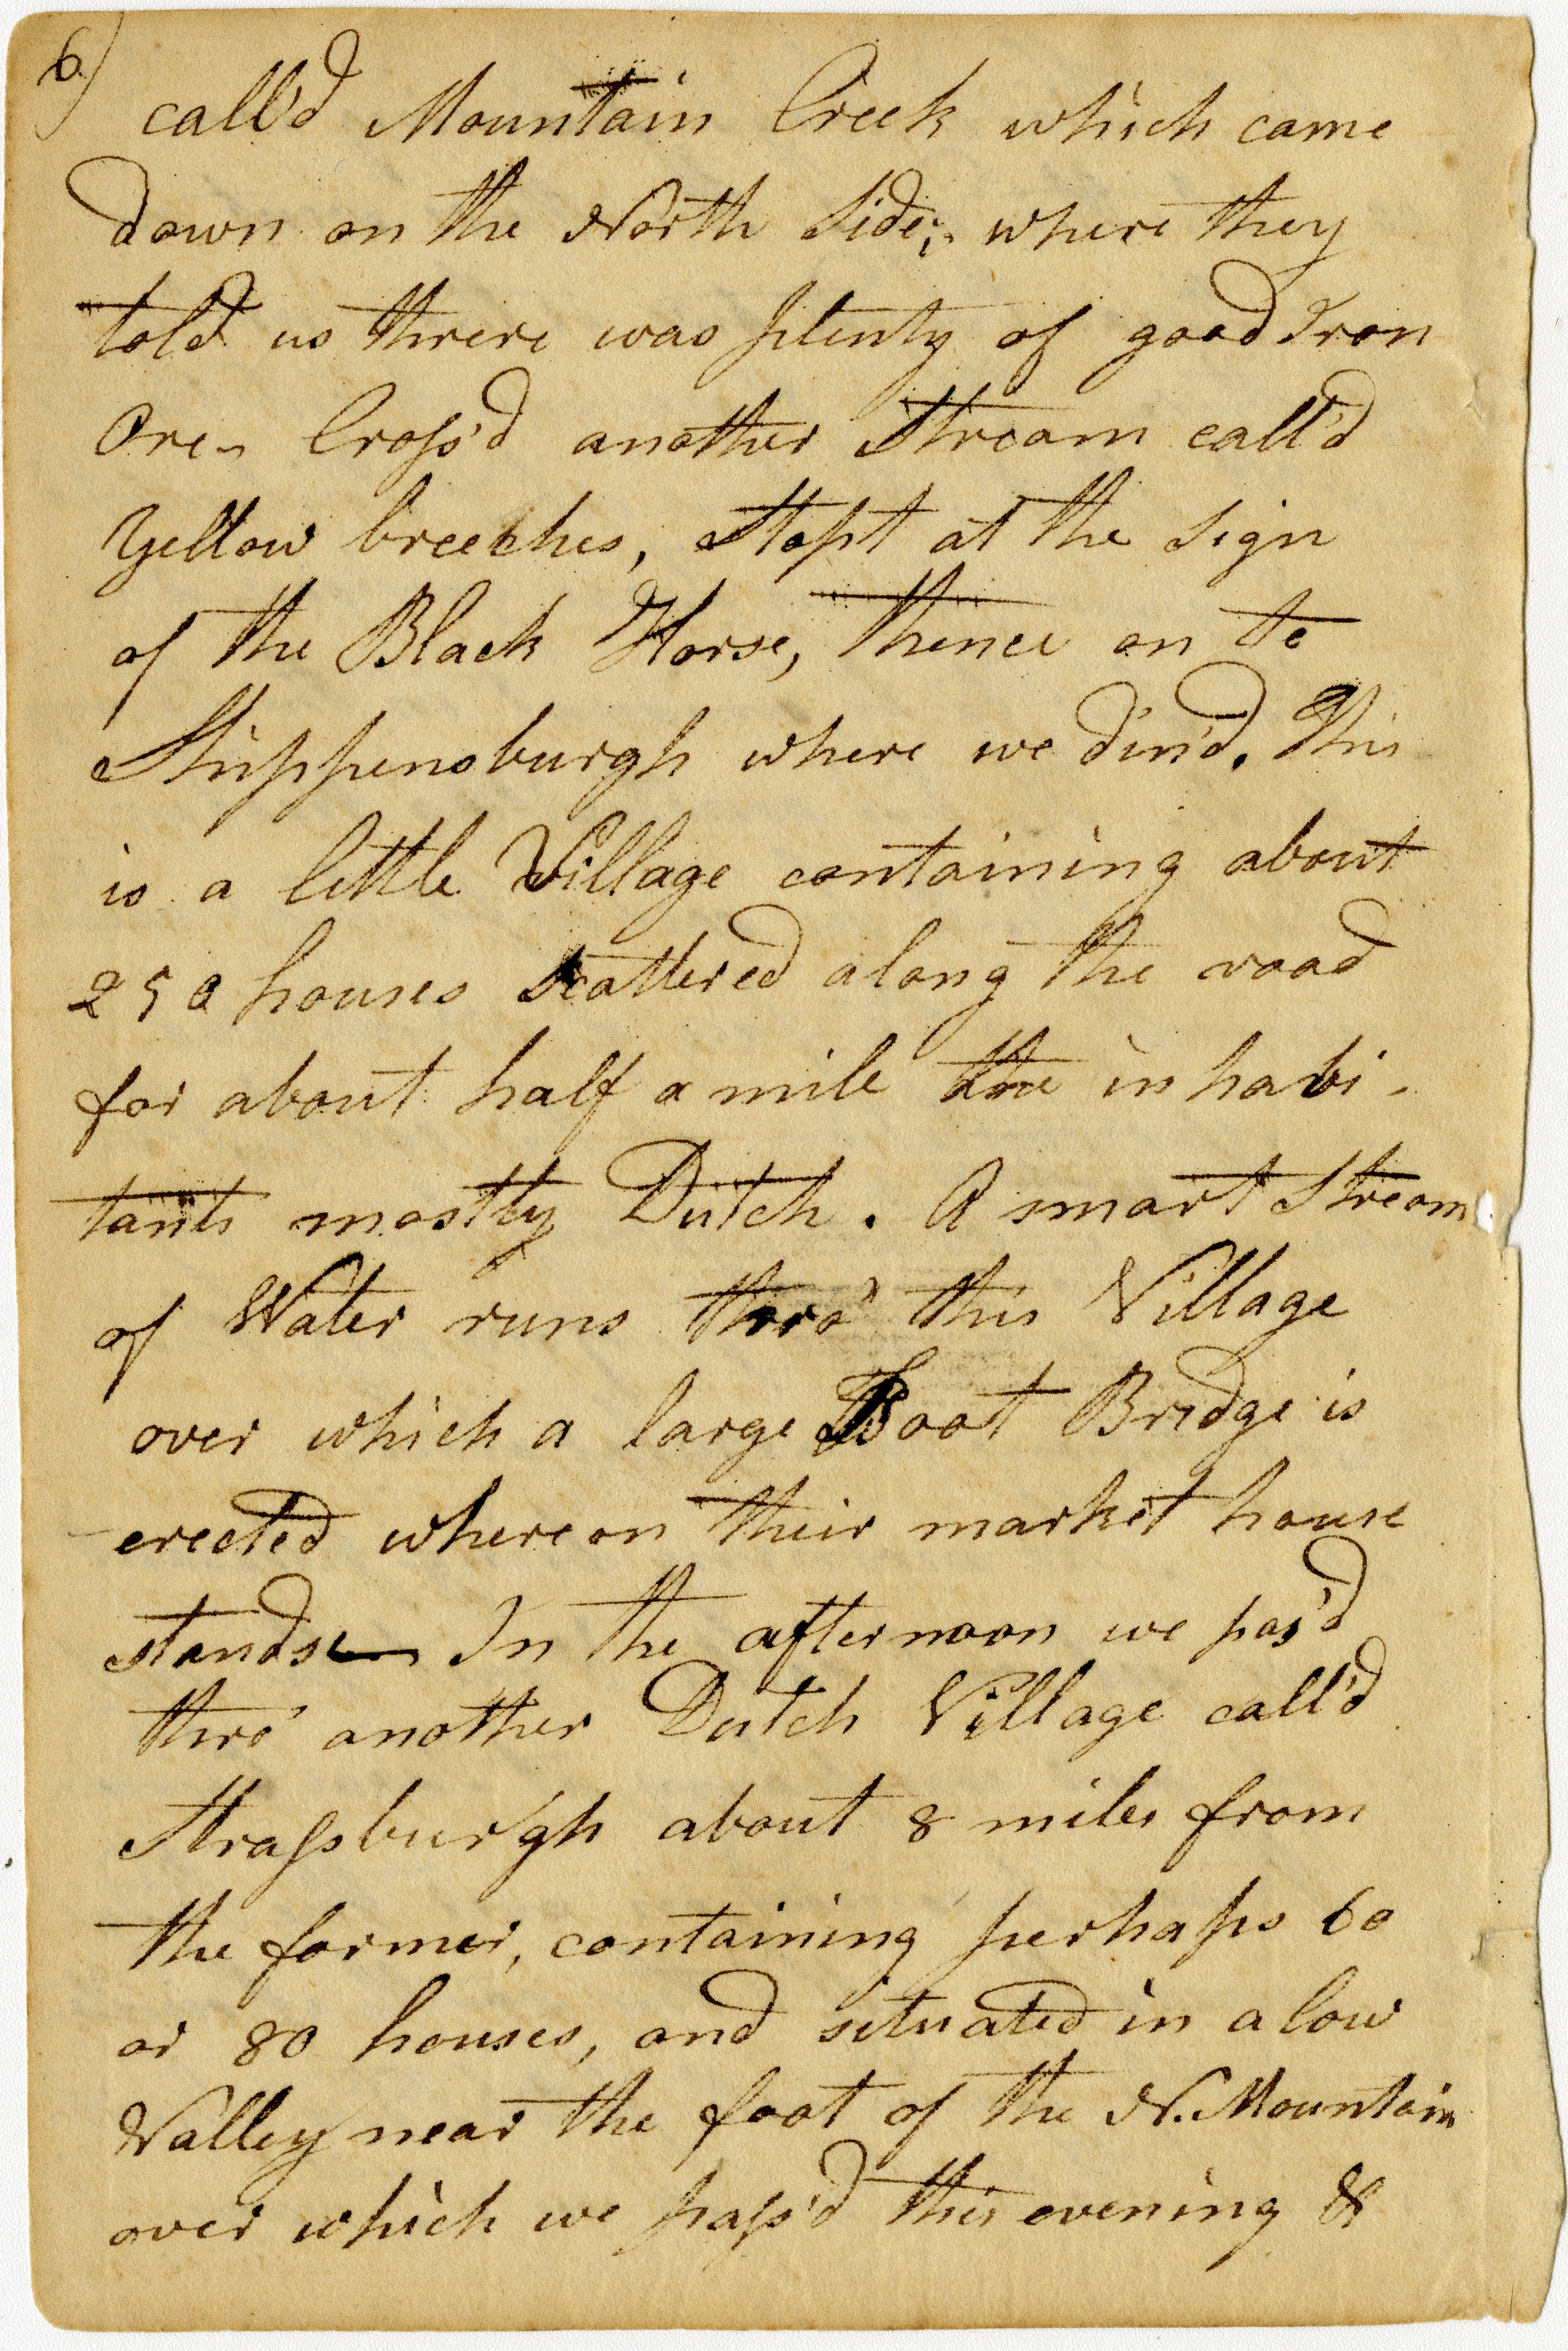 6)
call'd Mountain Creek which came
down on the North Side, where they
told us threre was plenty of good Iron
Ore. Cross'd another Stream call'd
Yellow breeches, Stopt at the Sign
of the Black Horse, thence on to
Shippensburgh where we din'd. This
is a little Village containing about
250 houses scattered along the road
for about half a mile the inhabi-
tants mostly Dutch. A smart Stream
of Water runs thro' this Village
over which a large Foot Bridge is
erected whereon their market house
stands In the afternoon we pas'd
thro' another Dutch Village call'd
Strassburgh about 8 miles from
the former, containing perhaps 60
or 80 houses, and situated in a low
Valley near the foot of the N. Mountain
over which we pass'd this evening &